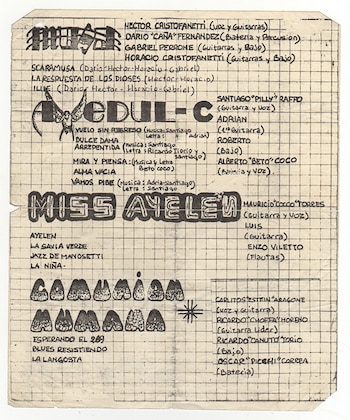 HECTOR CRISTOFANETTI (Voz y Guitarras)
DARIO "CAÑA" FERNANDEZ (Bateria y Percusion)
GABRIEL PERRONE (Guitarras y Bajo)
HORACIO CRISTOFANETTI (Guitarras y Bajo)
SCARAMUSA (Dario-Hector-Horacio-Gabriel)
LA RESPUESTA DE LOS DIOSES (Hector-Horacio)
ILUE (Dario-Hector-Horacio-Gabriel)
MEDUL-C
SANTIAGO "PILLY" RAFFO
(Guitarra y Voz)
ADRIAN
(1ª Guitarra)
ROBERTO
(Bajo)
ALBERTO "BETO" COCO
(Bateria y Voz)
VUELO SIN REGRESO (Musica: Santiago
Letra: Adrian)
DULCE DAMA
ARREPENTIDA (Musica: Santiago
Letra: Ricardo Iorio y
Santiago)
MIRA Y PIENSA: (Musica y Letra
Beto Coco)
ALMA VACIA
VAMOS PIBE (Musica: Adrian-Santiago
Letra: Santiago)
MISS AYELEN
MAURICIO "COCCO" TORRES
(Guitarra y Voz)
LUIS
(Guitarra)
ENZO VILETTO
(Flautas)
AYELEN
LA SAVIA VERDE
JAZZ DE MANOSETTI
LA NIÑA-
COMUNION
HUMANA
CARLITOS "ESTEIN" ARAGONE
(Voz y guitarra)
RICARDO "CHOFFA" MORENO
(Guitarra Lider)
RICARDO "CANUTO" IORIO
(Bajo)
OSCAR "PICCHI" CORREA
(Bateria)
ESPERANDO EL 289
BLUES RESISTIENDO
LA LANGOSTA